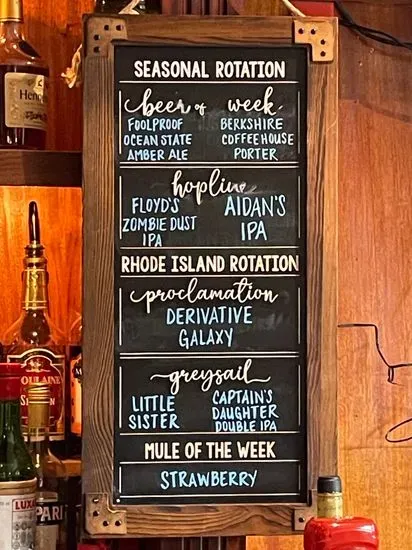 SEASONAL ROTATION
beer of week
FOOLPROOF
OCEAN STATE
AMBER ALE
BERKSHIRE
COFFEEHOUSE
PORTER
hopline
FLOYD'S
ZOMBIE DUST
IPA
AIDAN'S
IPA
RHODE ISLAND ROTATION
proclamation
DERIVATIVE
GALAXY
greysail
LITTLE
SISTER
CAPTAIN'S
DAUGHTER
DOUBLE IPA
MULE OF THE WEEK
STRAWBERRY
Henn
OULAINE
LUX
PARI